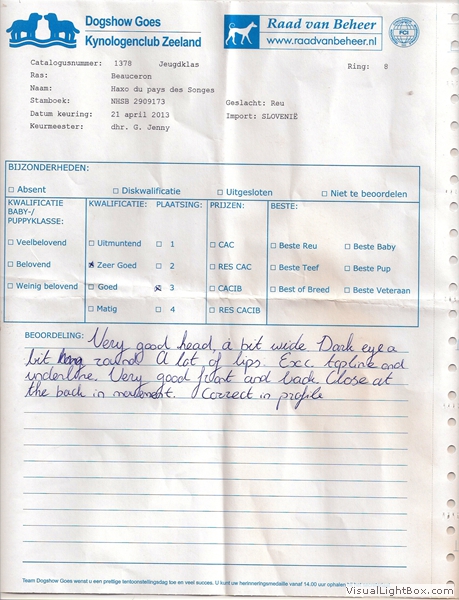 Dogshow Goes
Kynologenclub Zeeland
Raad van Beheer
www.raadvanbeheer.nl
FCI
Catalogusnummer: 1378 Jeugdklas Ring: 8
Ras: Beauceron
Naam: Haxo du pays des Songes
Stamboek: NHSB 2909173 Geslacht: Reu
Datum keuring: 21 april 2013 Import: SLOVENIË
Keurmeester: dhr. G. Jenny
BIJZONDERHEDEN:
Absent Diskwalificatie Uitgesloten Niet te beoordelen
KWALIFICATIE BABY-/ PUPPYKLASSE:
Veelbelovend
Belovend
Weinig belovend
KWALIFICATIE: PLAATSING:
Uitmuntend 1
Zeer Goed 2
Goed 3
Matig 4
PRIJZEN:
CAC
RES CAC
CACIB
RES CACIB
BESTE:
Beste Reu Beste Baby
Beste Teef Beste Pup
Best of Breed Beste Veteraan
BEOORDELING: Very good head, a bit wide. Dark eye a
bit round. A lot of lips. Exc. topline and
underline. Very good front and back. Close at
the back in movement. Correct in profile
Team Dogshow Goes wenst u een prettige tentoonstellingsdag toe en veel succes. U kunt uw herinneringsmedaille vanaf 14.00 uur ophalen
VisualLightBox.com